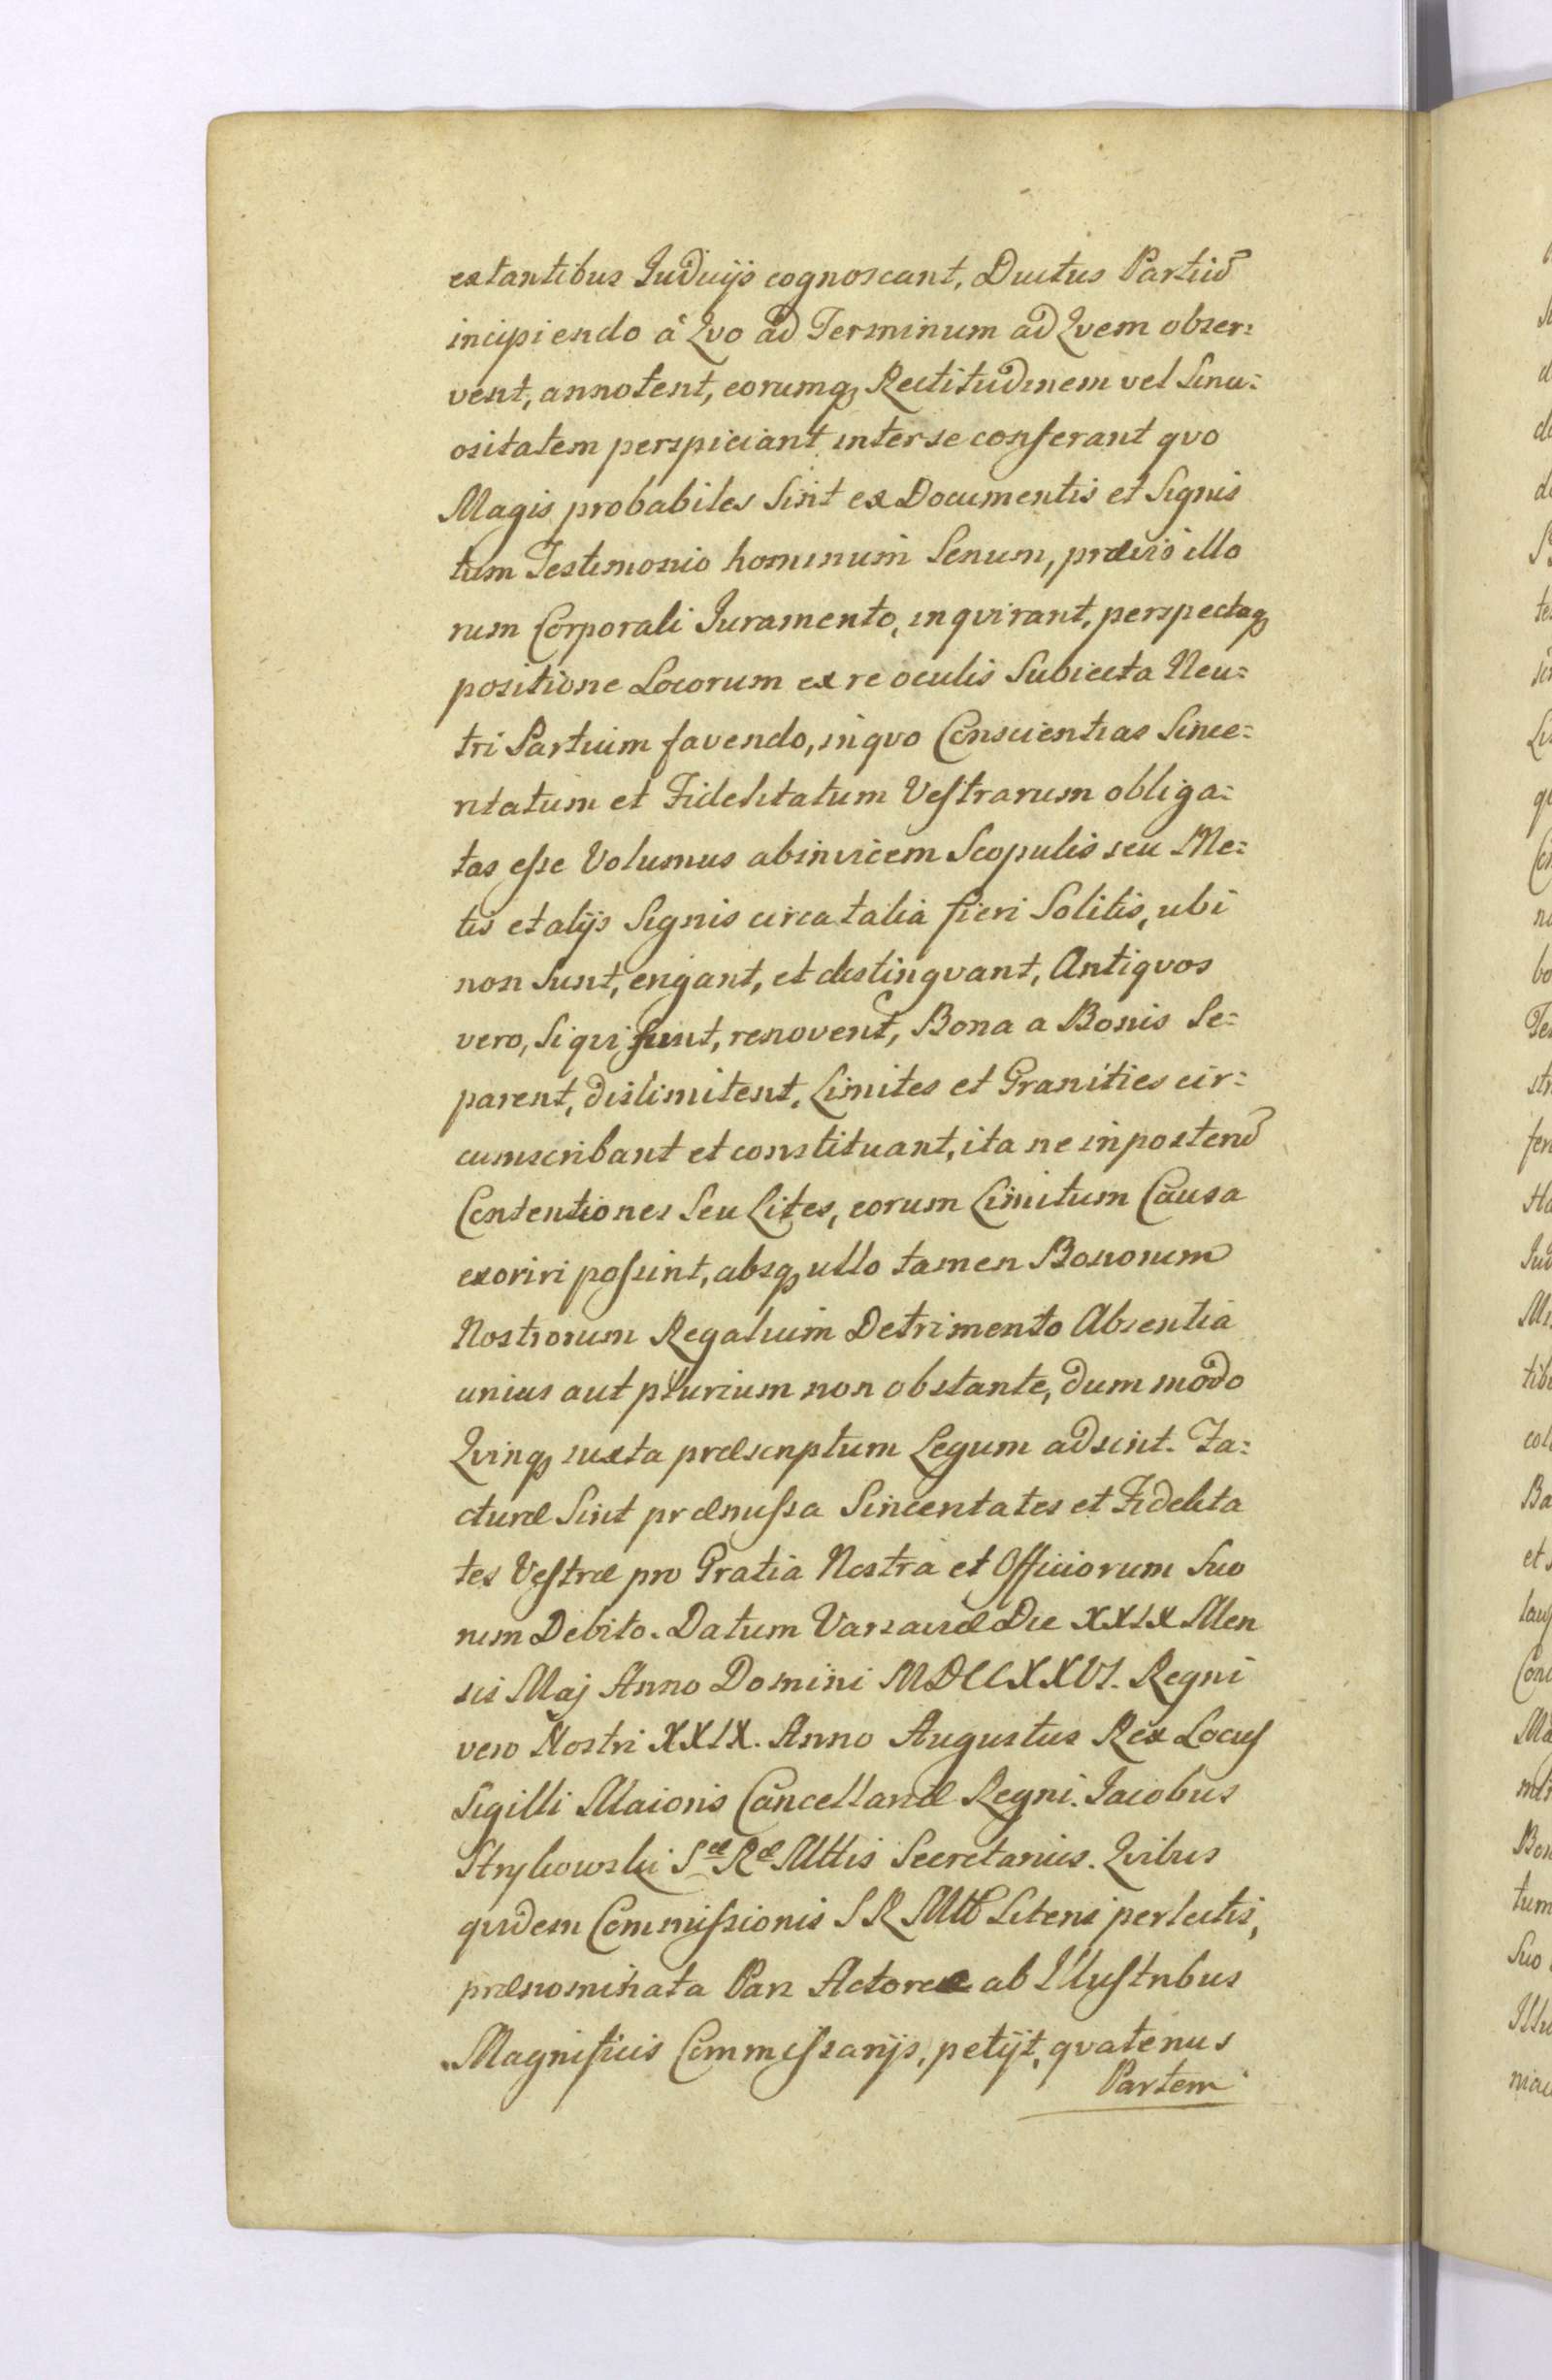 extantibus Judicijs cognoscant, Ductus Partiũ
incipiendo à Qvo ad Terminum ad Qvem obser=
vent, annotent, eorumq Rectitudinem vel Sinu=
ositatem perspiciant inter se conferant qvo
Magis probabiles Sint ex Documentis et Signis
tum Testimonio hominum Senum, prævio illo
rum Corporali Juramento, inqvirant, perspectaq
positione Locorum ex re oculis Subiecta Neu=
tri Partium favendo, in qvo Conscientias Since=
ritatum et Fidelitatum Vestrarum obliga=
tas esse Volumus abinvicem Scopulis seu Me=
tis et alijs Signis circa talia fieri Solitis, ubi
non Sunt, erigant, et distingvant, Antiqvos
vero, Si qvi sunt, renovent, Bona a Bonis Se=
parent, dislimitent, Limites et Granities cir=
cumscribant et constituant, ita ne in posterũ
Contentiones Seu Lites, eorum Limitum Causa
exoriri possint, absq ullo tamen Bonorum
Nostrorum Regalium Detrimento Absentia
unius aut plurium non obstante, dum modo
Qvinq iuxta præscriptum Legum adsint. Fa=
cturæ Sint præmissa Sinceritates et Fidelita
tes Vestræ pro Gratia Nostra et Officiorum Suo
rum Debito. Datum Varsaviæ Die XXIX Men
sis Maj Anno Domini MDCCXXVI. Regni
vero Nostri XXIX. Anno Augustus Rex Locus
Sigilli Maioris Cancellariæ Regni. Jacobus
Strykowski Sæ Ræ Mttis Secretarius. Qvibus
qvidem Commissionis S R Mtt Literis perlectis,
prænominata Pars Actorea ab Illustribus
Magnificis Commissarijs, petijt, qvatenus
Partem